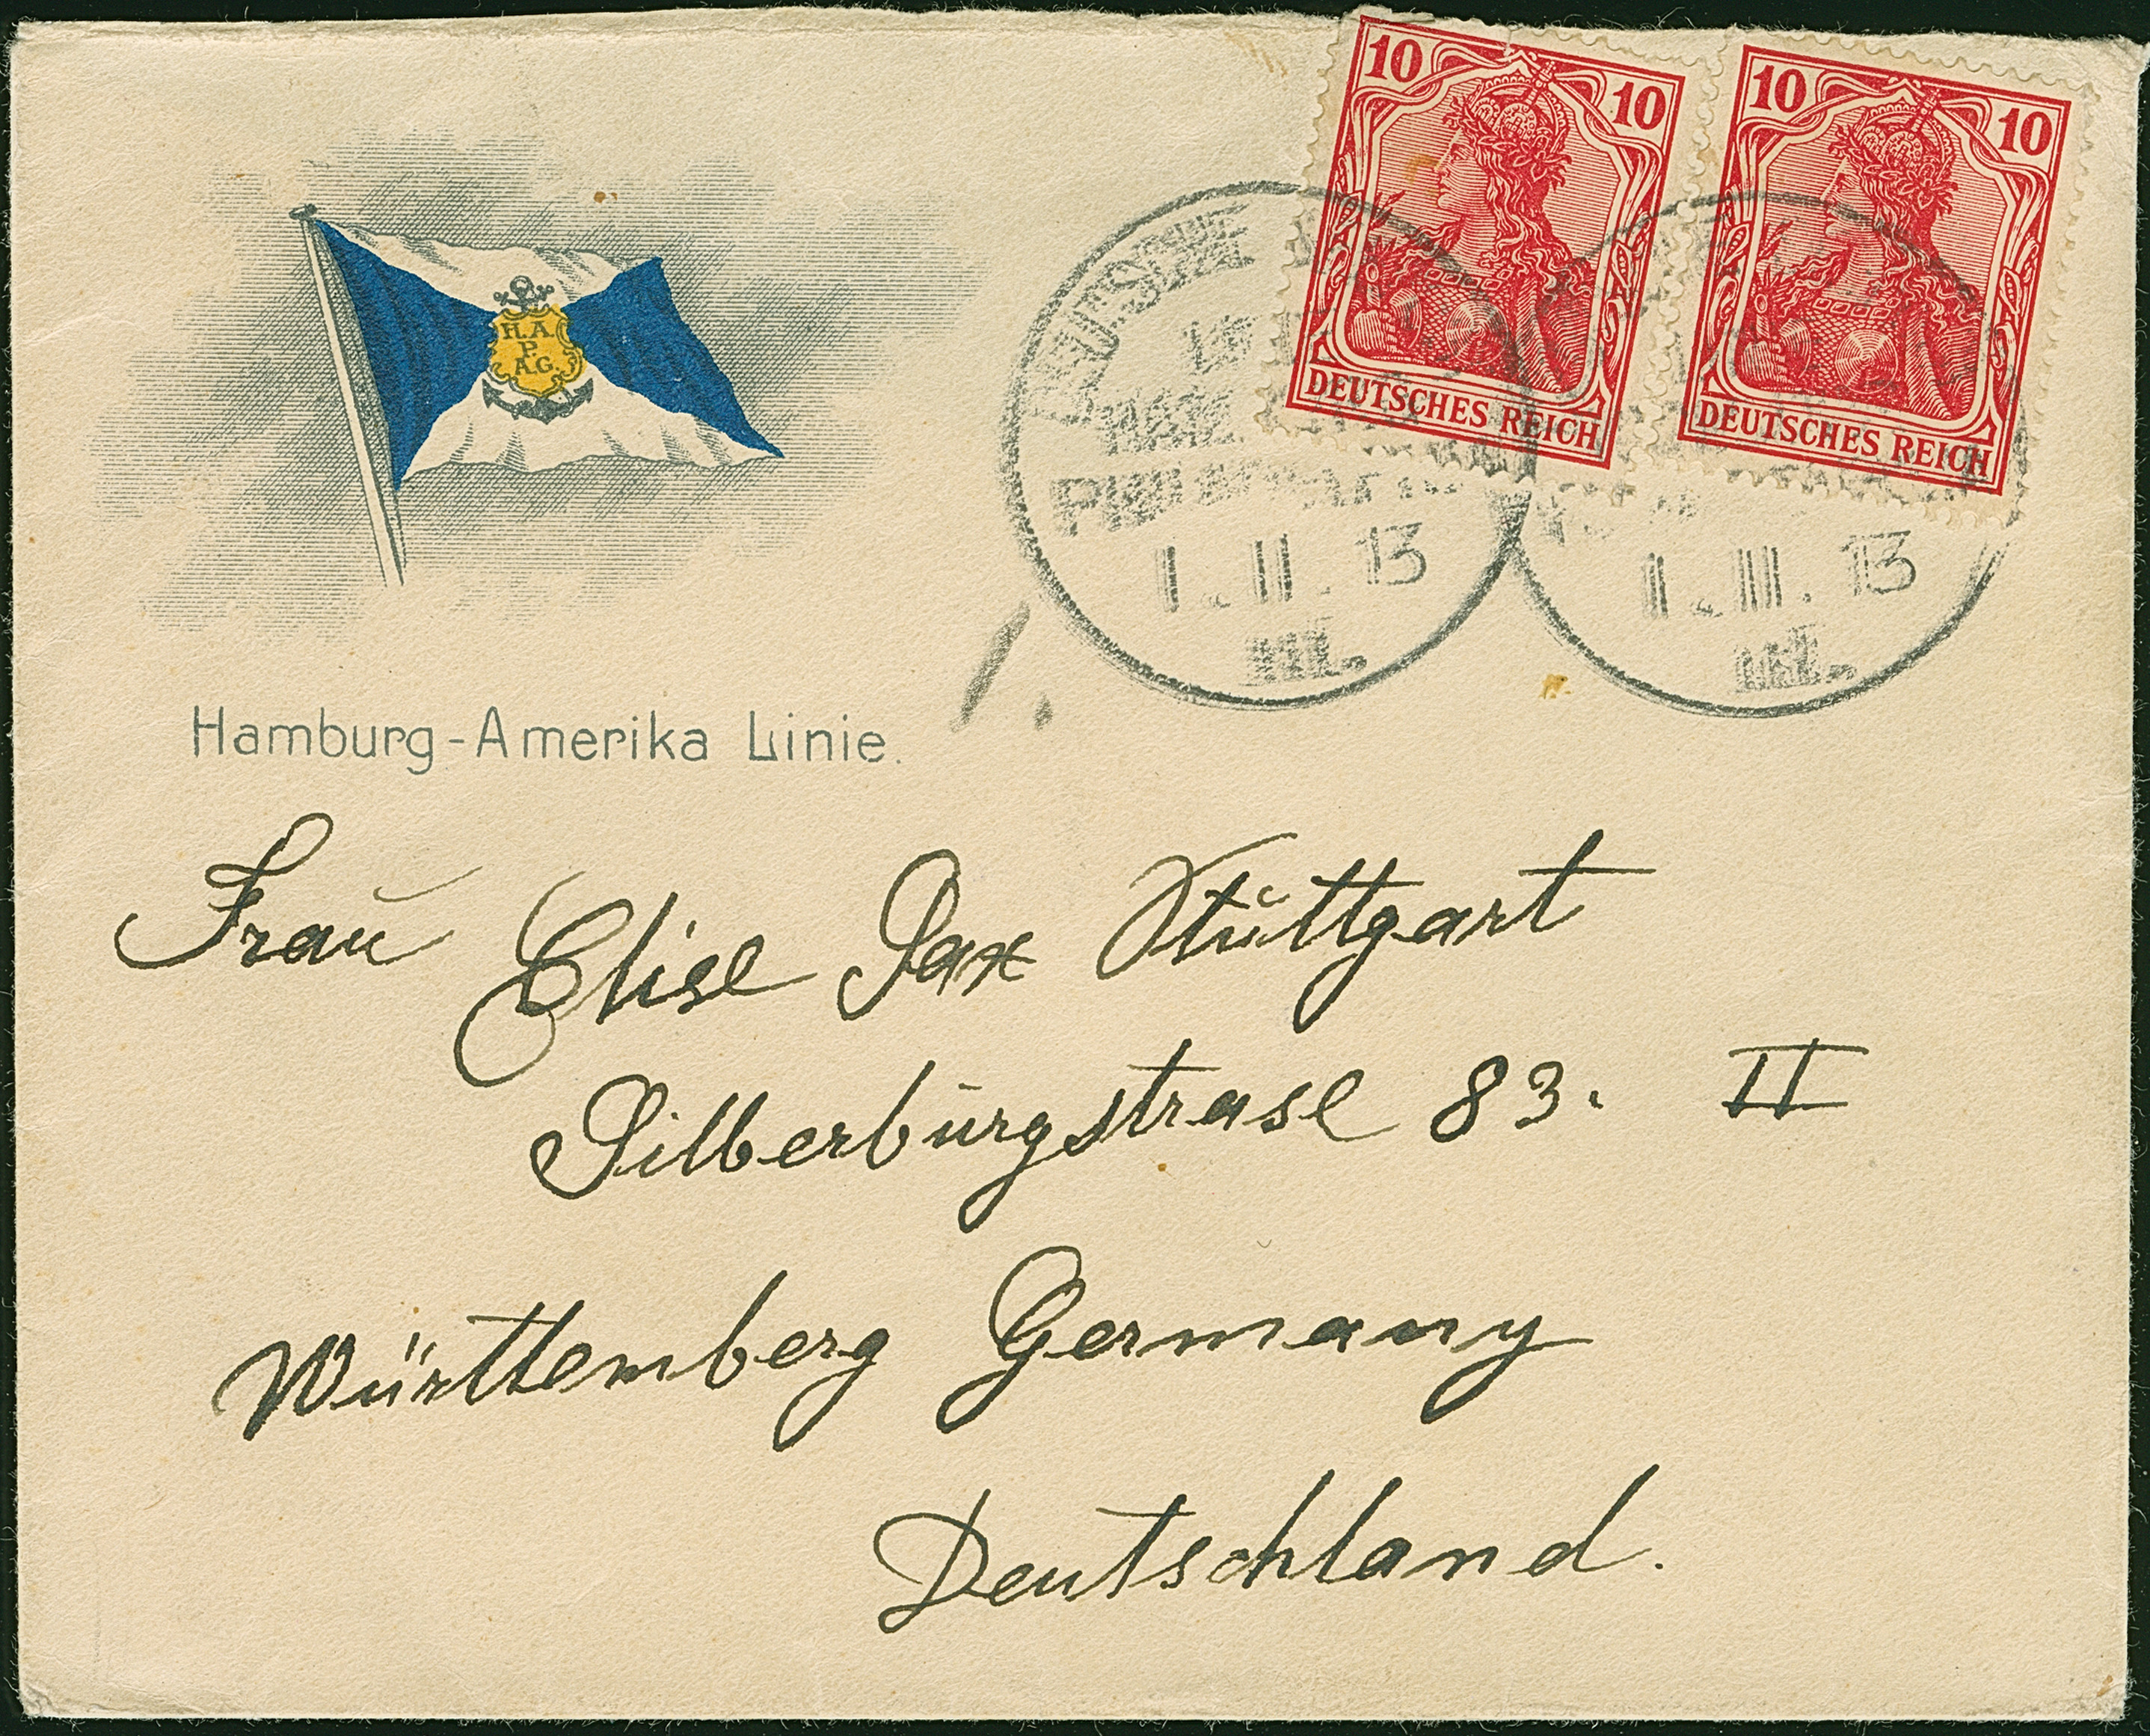 10 10
DEUTSCHES REICH
10 10
DEUTSCHES REICH
H. A.
P.
A.G.
1.II.13
1.III.13
Hamburg-Amerika Linie.
Frau Elise Pax Stuttgart
Silberburgstrase 83. II
Württemberg Germany
Deutschland.